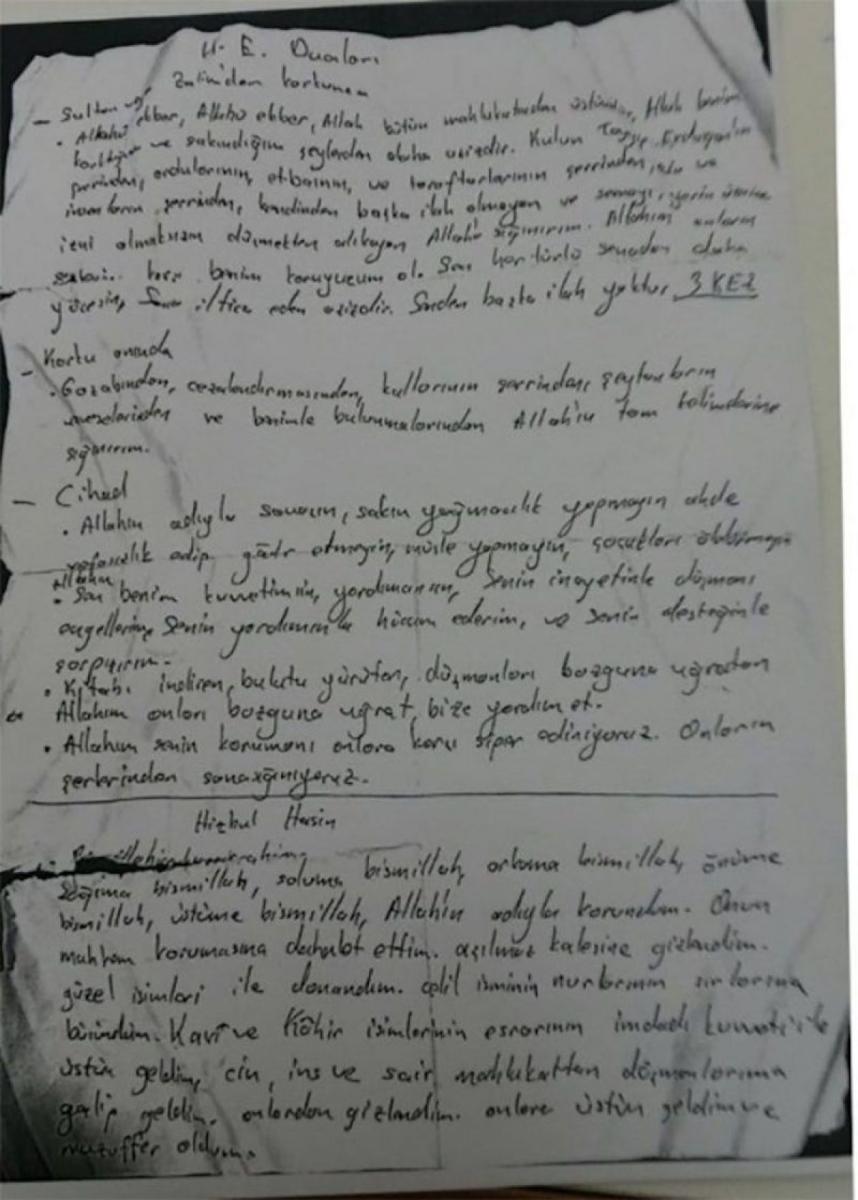 H. E. Duaları
Zalimden korkunca
- Sultan
• Allahü ekber, Allahü ekber, Allah bütün mahlukatından üstündür, Allah benim
korktuğum ve sakındığım şeylerden daha azizdir. Kulun Tayyip Erdoğan'ın
şerrinden, ordularının, etbaının, ve taraftarlarının şerrinden, ve
insanların şerrinden, kendinden başka ilah olmayan ve semayı, yerin üzerine
izni olmaksızın düşmekten alıkoyan Allah'a sığınırım. Allahım onların
karşı benim koruyucum ol. Sen her türlü senadan daha
yücesin, iltica eden azizdir. Senden başka ilah yoktur. 3 KEZ
- Korku anında
• Gazabından, cezalandırmasından, kullarının şerrinden, şeytanların
ve benimle bulunmalarından Allah'ın tam kelimelerine
sığınırım.
- Cihad
• Allahın adıyla savaşın, sakın yağmacılık yapmayın ahde
vefasızlık edip gadr etmeyin, müsle yapmayın, çocukları öldürmeyin
Allahım
• Sen benim kuvvetimsin, yardımcımsın, Senin inayetinle düşmanı
engellerim, Senin yardımınla hücum ederim, ve senin desteğinle
çarpışırım.
• Kitabı indiren, bulutu yürüten, düşmanları bozguna uğratan
Allahım onları bozguna uğrat, bize yardım et.
• Allahım senin korumanı onlara karşı siper ediniyoruz. Onların
şerlerinden sana sığınıyoruz.
Hizbul Hasin
Bismillahirrahmanirrahim
Sağıma bismillah, soluma bismillah, arkama bismillah, önüme
bismillah, üstüme bismillah, Allah'ın adıyla korundum. Onun
muhkem korumasına dehalet ettim. açılmaz kalesine gizlendim.
güzel isimleri ile donandım. celil isminin nurlarının sırlarına
büründüm. Kavi ve Kâhir isimlerinin esrarının imdadı kuvveti ile
üstün geldim, cin, ins ve sair mahlukattan düşmanlarıma
galip geldim. onlardan gizlendim. onlara üstün geldim ve
muzaffer oldum.